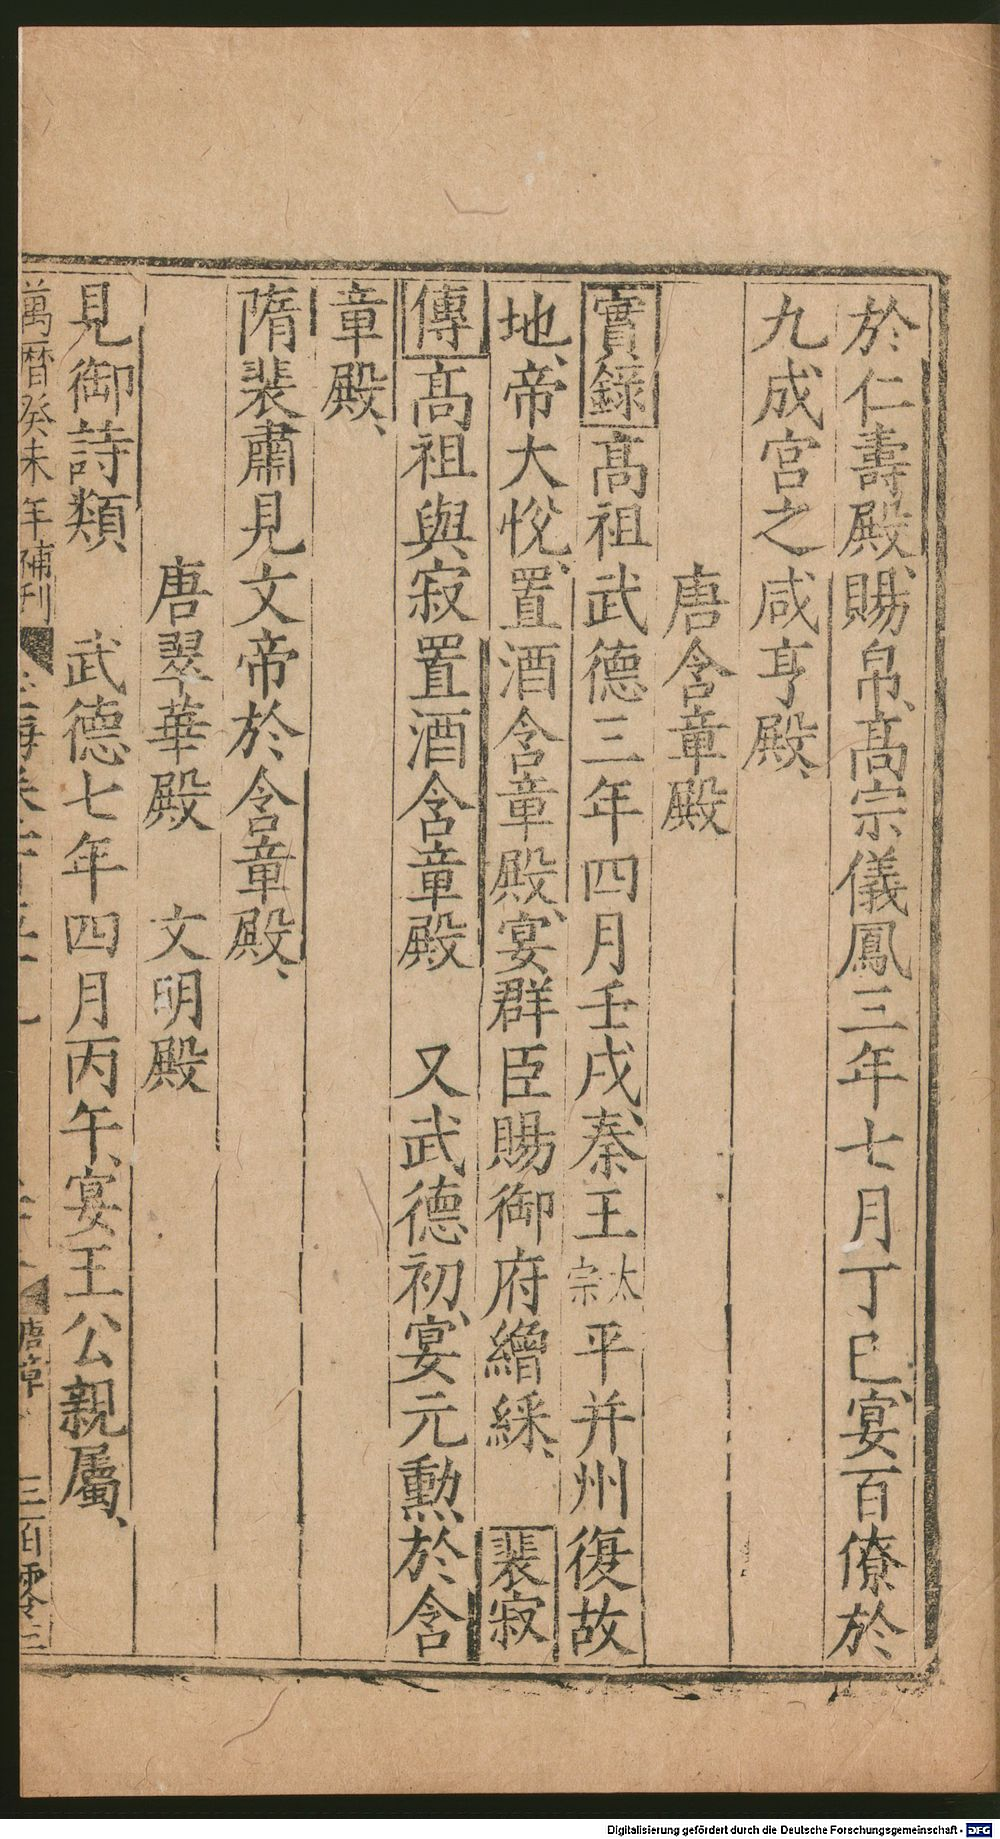 於仁壽殿、賜帛、髙宗儀鳳三年七月丁巳、宴百僚於
九成宮之咸亨殿、
唐含章殿
實錄髙祖武德三年四月壬戌、秦王太宗平并州復故
地、帝大悅、置酒含章殿、宴群臣賜御府繒綵、裴寂
傳髙祖與寂置酒含章殿 又武德初、宴元勲於含
章殿、
隋裴肅見文帝於含章殿、
唐翠華殿 文明殿
見御詩類 武德七年四月丙午、宴王公親屬、
萬曆癸未年補刊
Digitalisierung gefördert durch die Deutsche Forschungsgemeinschaft - DFG